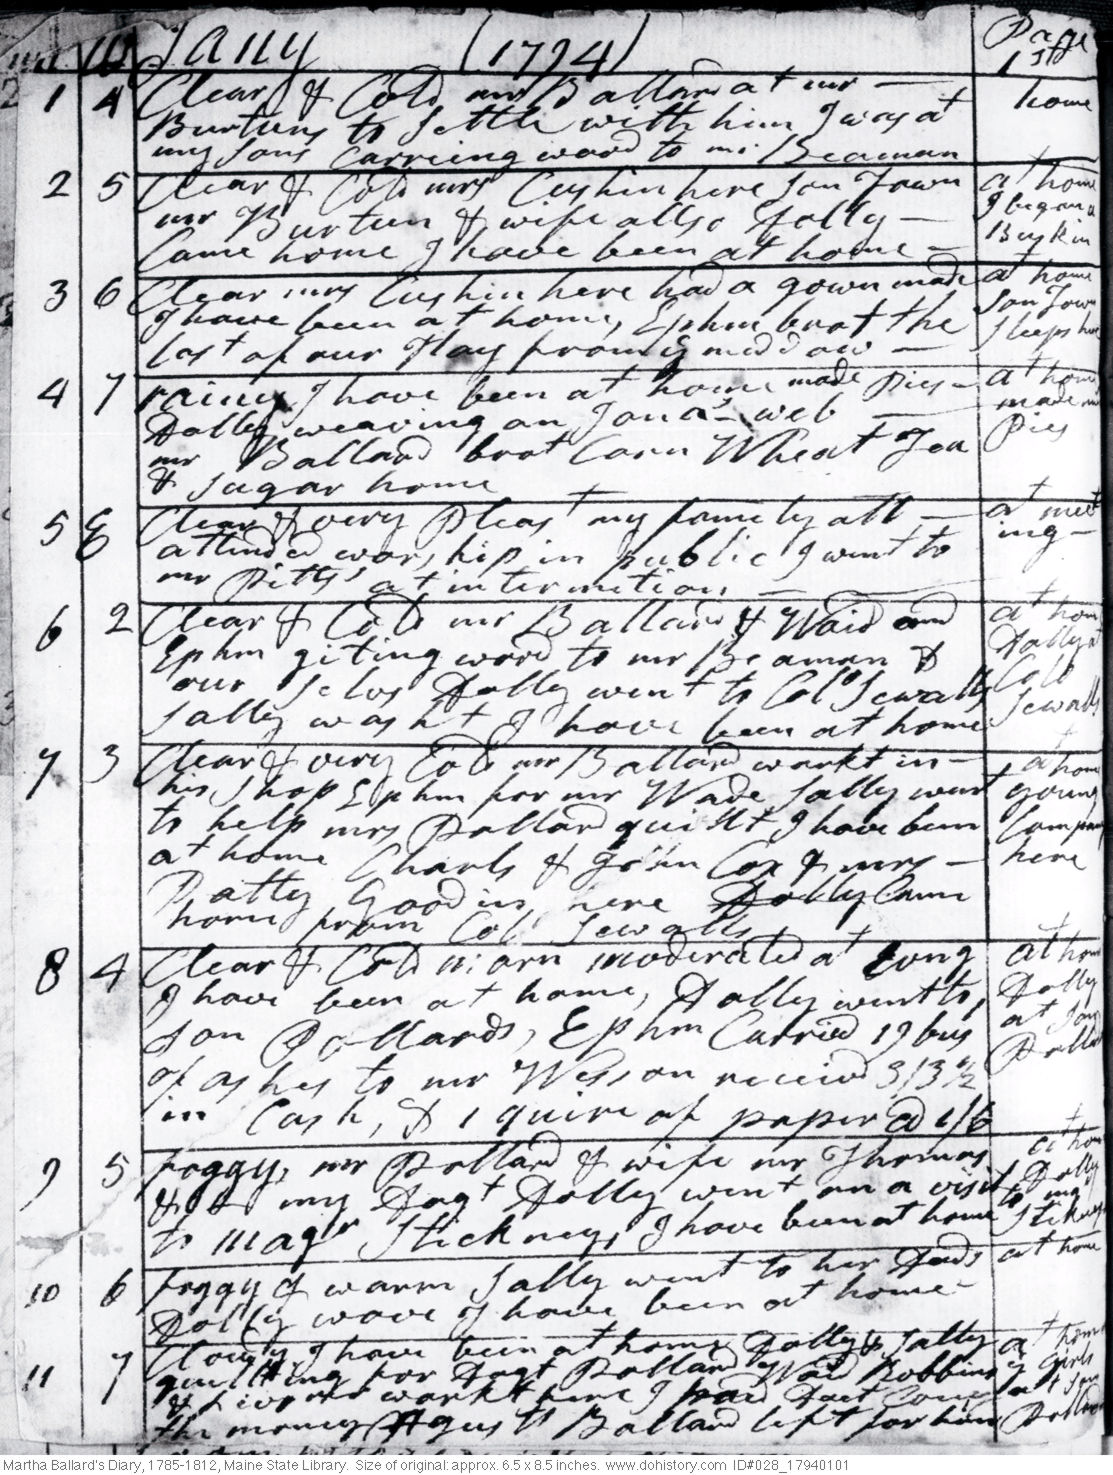 Jany (1794) Page 1st
1 4 Clear & Cold mr Ballard at mr — home
Burtuns to Settle with him I was at
my sons Carrieing word to mr Beaman
2 5 Clear & Cold mrs Cushin here son Town at home
mr Burtun & wife allso Dolly — I began a
Came home I have been at home — Buskin
3 6 Clear mrs Cushin here had a gown made at home
I have been at home, Ephm brot the son Town
last of our Hay from ye meddow — sleeps here
4 7 rainy I have been at home made Pies — at home
Dolly weaving on Jona's web — made
mr Ballard brot Corn Wheat Tea Pies
& Sugar home
5 E Clear & very Pleast my family all — at meet
attinded worship in public I went to ing —
mr Pitts' at intermition —
6 2 Clear & Cold mr Ballard & Waid and at home
Ephm giting word to mr Beaman & Dolly at
our selvs Dolly went to Col Sewalls Col
Sally washt I have been at home Sewalls
7 3 Clear & very Cold mr Ballard workt in — at home
his Shop Ephm for mr Wade Sally went young
to help mrs Ballard quillt I have been Company
at home Charls & John Cox & mrs — here
Patty Goodin here Dolly Came
home from Col Sewalls
8 4 Clear & Cold morn moderated at Evng at home
I have been at home, Dolly went to, Dolly
son Pollards, Ephm Carried 19 bus at son
of ashes to mr Wesson received 3/3 ½ Pollards
in Cash, & 1 quire of paper @ 1/6
9 5 foggy, mr Pollard & wife mr Thomas at home
& my Dagt Dolly went on a visit Dolly
to magr Stickneys, I have been at home to magr Stickneys
10 6 foggy & warm Sally went to her Dads at home
Dolly wove I have been at home —
11 7 Cloudy I have been at home Dolly & Sally at home
quillting for Dagt Pollard Waid Robbins ye girls
& workt here I paid Doct Cony at son
the money Agustus Ballard left for him Pollards
Martha Ballard's Diary, 1785-1812, Maine State Library. Size of original: approx. 6.5 x 8.5 inches. www.dohistory.com ID#028_17940101